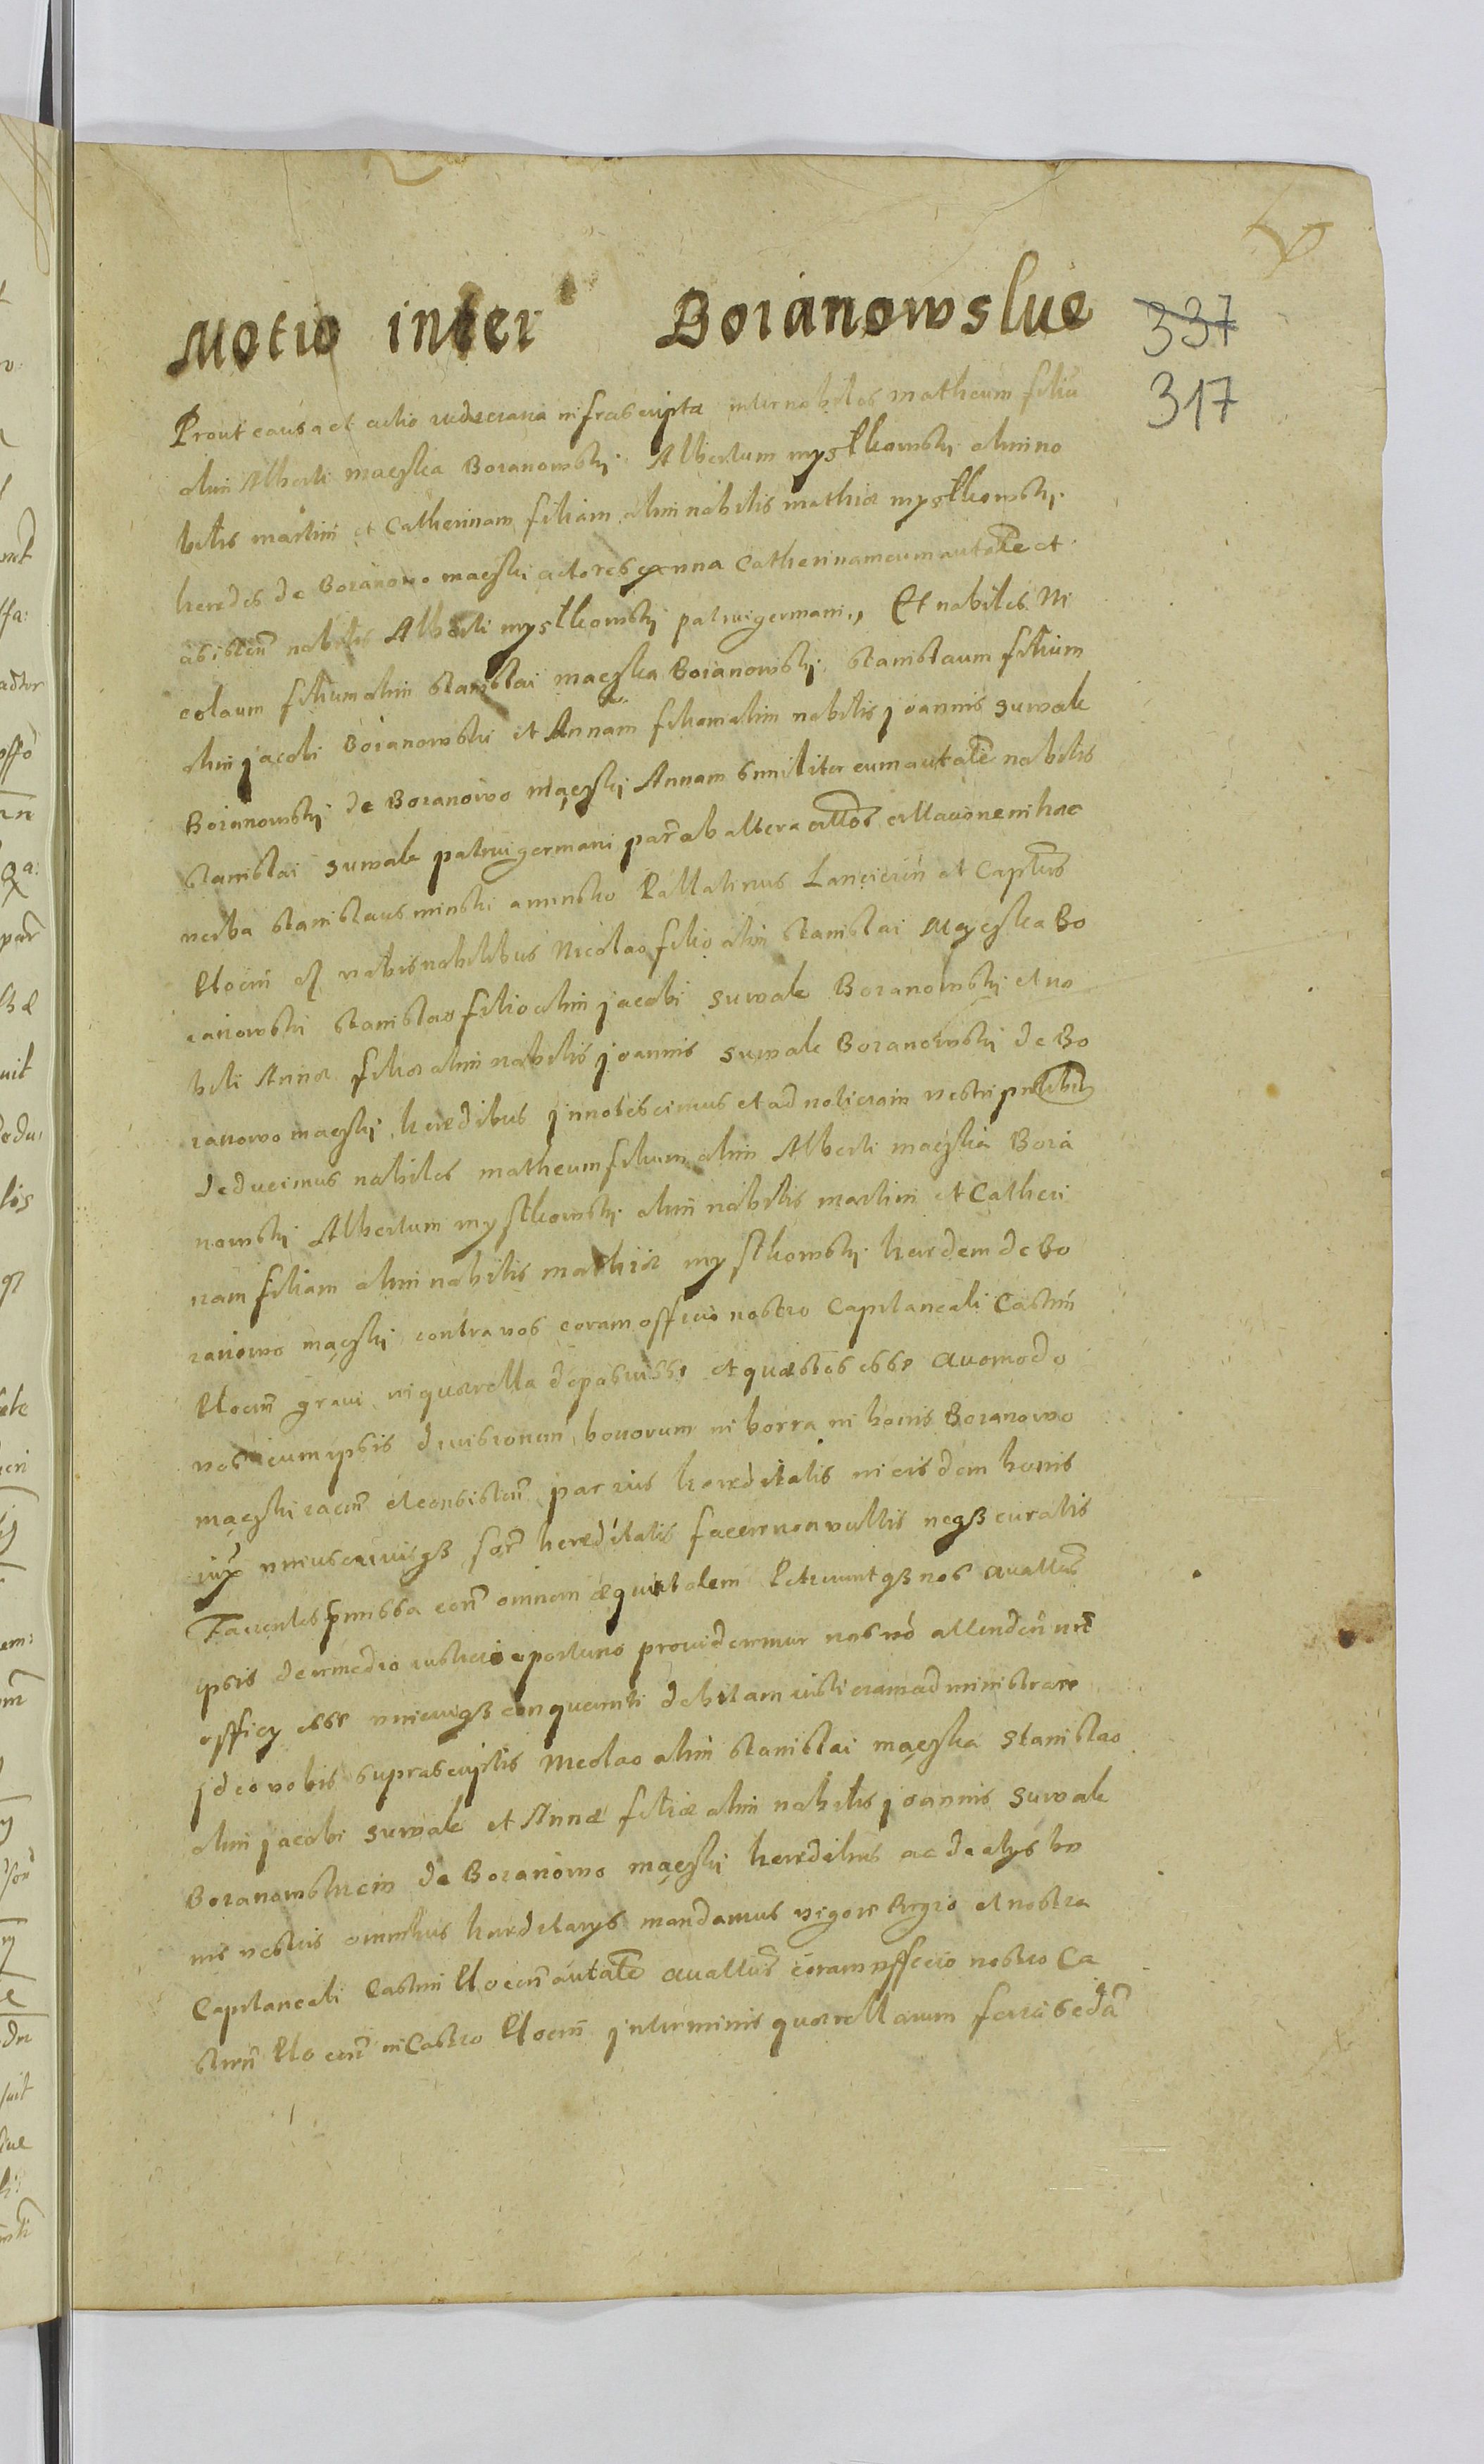 Motio inter Boianowskie
337
317
Prout causa et actio iudiciaria infrascripta inter nobiles matheum filiũ
olim Alberti maęska Boianowskị Albertum mystkowskị olim no
bilis martini et Catherinam filiam olim nobilis mathiæ mystkowskị
heredes de Boianowo maęski actores Catherinam cum autate et
asisten nobilis Alberti mystkowskị patrui germani, Et nobiles Ni
colaum filium olim stanislai maęska Boianowskị stanislaum filium
olim jacobi Boianowski et Annam filiam olim nobilis joannis suwale
Boianowskị de Boianowo maęskị Annam similiter cum autate nobilis
stanislai suwale patrui germani par ab altera citationem in hæc
verba stanislaus minski a minsko Pallatinus Lancicien et Captus
Plocen vobis nobilibus Nicolao filio olim stanislai Maęska Bo
ianowski stanislao filio olim jacobi suwale Boianowskị et no
bili Annæ filiæ olim nobilis joannis suwale Boianowskị de Bo
ianowo maęskị heredibus jnnotescimus et ad noticiam vestri
deducimus nobiles matheum filium olim Alberti maęska Boia
nowskị Albertum mystkowskị olim nobilis martini et Catheri
nam filiam olim nobilis mathiæ mystkowskị heredem de Bo
ianowo maęski contra vos coram officio nostro Capitaneali Castren
Plocen gravi in querella deposuisse et quæstos esse quomodo
vos cum ipsis divisionem bonorum in bonis Boianowo
maęski iacen et consisten par ius hereditatis in eisdem bonis
iux uniuscuiusqß sor hereditatis facere non vultis neqß curatis
Facientes præmissa con omnem æquitatem Petiuntqß nos quatus
ipsis de remedio iusticiæ oportuno provideremur nos vo attenden nri
officij esse unicuiqß conquerenti debitam iusticiam administrare
jdeo vobis suprascriptis Nicolao olim stanislai maęska stanislao
olim jacobi suwale et Annæ filiæ olim nobilis joannis suwale
Boianowskiem de Boianowo maęski heredibus ac de alijs bo
nis vestris omnibus hereditarijs mandamus vigore Regio et nostra
Capitaneali Castren Plocen autate quatus coram officio nostro Ca
stren Plocen in Castro Plocen jn terminis querellarum feria secda